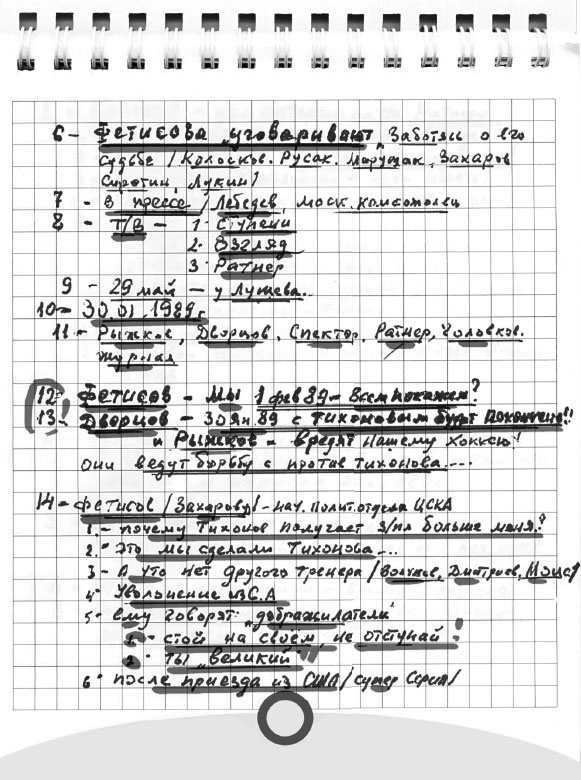 6 - Фетисова "уговаривают", Заботясь о его
судьбе / Колосков. Русак. Марущак, Захаров
Сыротин, Лукин/
7 - в прессе / Лебедев, моск. комсомолец
8 - Т/В - 1. Ступени
2. Взгляд
3. Ратнер
9 - 29 май - у Лущева..
10 - 30.01.1989г
11 - Рыжков, Дворцов, Спектор, Ратнер, Чоловков.
журнал
12 - Фетисов - Мы 1 фев 89 - Всем покажем?
13 - Дворцов - 30 Ян. 89 с Тихоновым будет покончено!!
и Рыжков - вредят нашему хоккею!
Они ведут борьбу с против Тихонова...
14 - Фетисов /Захарову/ - нач. полит.отдела ЦСКА
1. - почему Тихонов получает з/пл больше меня?
2. Это мы сделали Тихонова...
3 - А что нет другого тренера / Волчков, Дмитриев,
4. Увольнение из С.А
5. ему говорят: "доброжилатели"
1. - стой на своём, не отступай!
2. ты "великий"
6. после приезда из США / супер Серия /